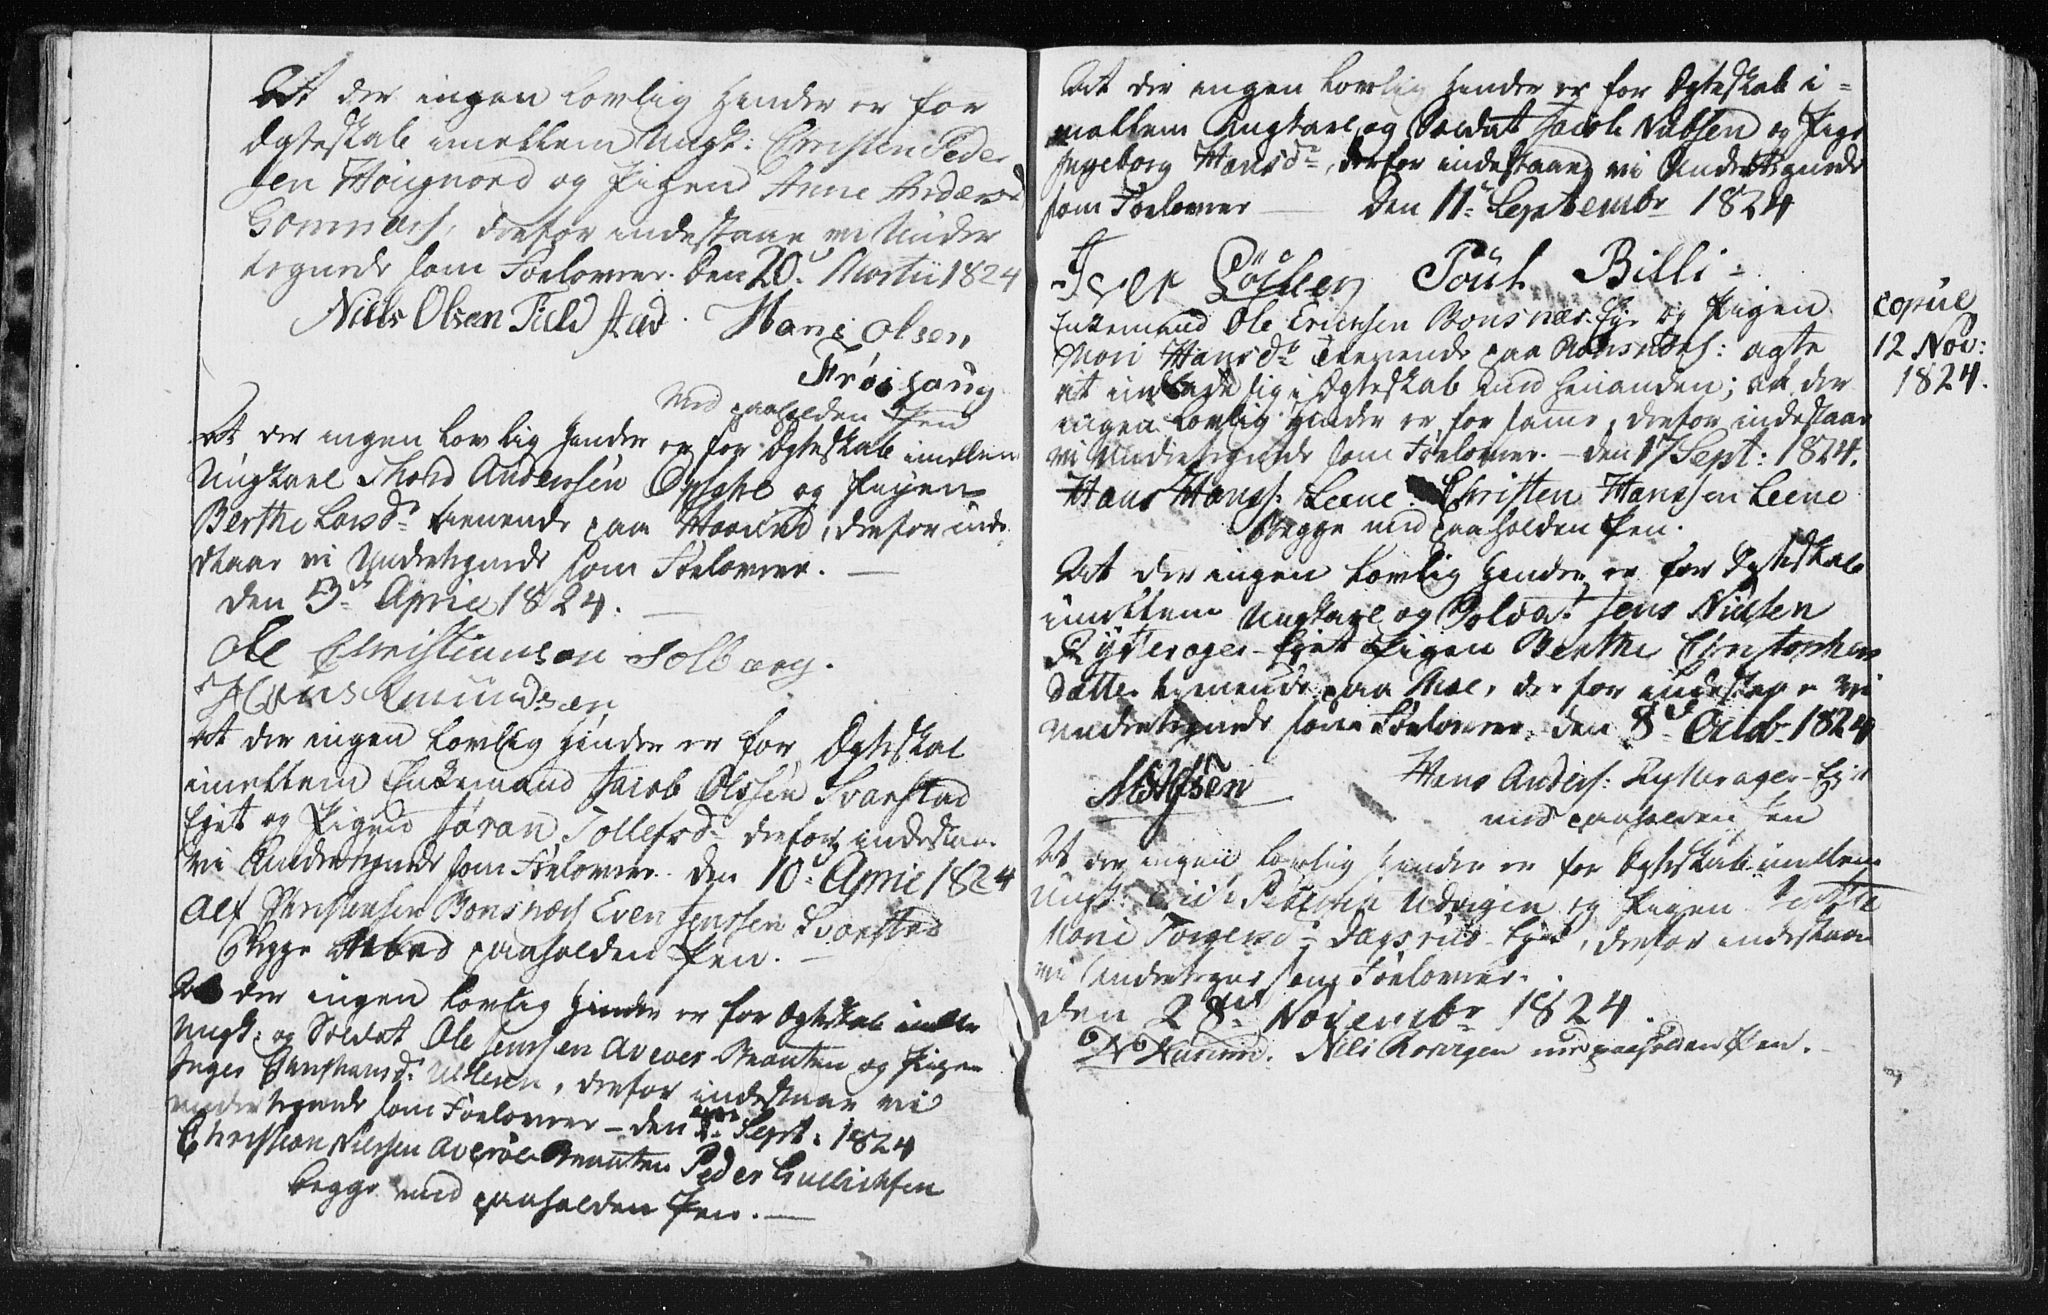 At der ingen lovlig Hinder er for
Ægteskab imellem Ungk: Christen Peder
sen Høignord og Pigen Anne Andersd
derfor indestaae vi Under
tegnede som Forlovere. Den 20d Martii 1824
Niels Olsen Field stad. Hans Olsen
Frøishaug
Med paaholden Pen
At der ingen lovlig Hinder er for Ægteskab imellem
Ungkarl Thord Andersen og Pigen
Berthe Larsdr tienende paa derfor inde
staae vi Undertegnede som Forlovere. —
Den 3d April 1824. —
Ole Christiansen Solberg.
Hans Amundsen
At der ingen lovlig Hinder er for Ægteskab
imellem Enkemand Jacob Olssen Svarstad
Eyet og Pigen Jøran Tollefsd derfor indestaae
vi Undertegnede som Forlovere. Den 10d April 1824
Alf Christensen Bonsnæs Even Jenssen Svarstad
Begge med paaholden Pen. —
At der ingen lovlig Hinder er for Ægteskab imellem
Ungk: og Soldat Ole Jenssen Braaten og Pigen
Inger Christiansd: derfor indestaae vi
undertegnede som Forlovere — den Sept: 1824
Christian Nilssen Braaten Peder Gullichsen
begge med paaholden Pen. —
At der ingen lovlig Hinder er for Ægteskab i-
mellem Ungkarl og Soldat Jacob Nielsen og Pige
Ingeborg Hansdr, derfor indestaae vi Undertegnede
som Forlovere — Den 11te Septembr 1824
Iver Poul Billi
Enkemand Ole Ericksen Bonsnæs Eye og Pigen
Mari Hansdr tienende paa Bonsnæs: agte
at indlade sig i Ægteskab med hinanden; at der
ingen lovlig Hinder er for samme, derfor indestaae
vi Undertegnede som Forlovere. — den 17 Sept: 1824.
Hans Hanss: Leene Christen Hanssen Leene
Begge med paaholden Pen.
copul
12 Nov:
1824.
At der ingen lovlig Hinder er for Ægteskab
imellem Ungkarl og Soldat Jens Nielsen
Rytterager-Eyet Pigen Berthe Christophers
datter tienende paa Moe, derfor indestaae vi
undertegnede som Forlovere, den 8d Octbr 1824
Hans Anders: Rytterager-Eyet
med paaholden Pen
At der ingen lovlig Hinder er for Ægteskab imellem
Ungk: Erich Pedersen Udvigen og Pigen
Marie Torgersd: Dagsrud-Eyet, derfor indestaae
vi Undertegnede som Forlovere.
Den 28de Novembr 1824.
Nils med paaholden Pen.